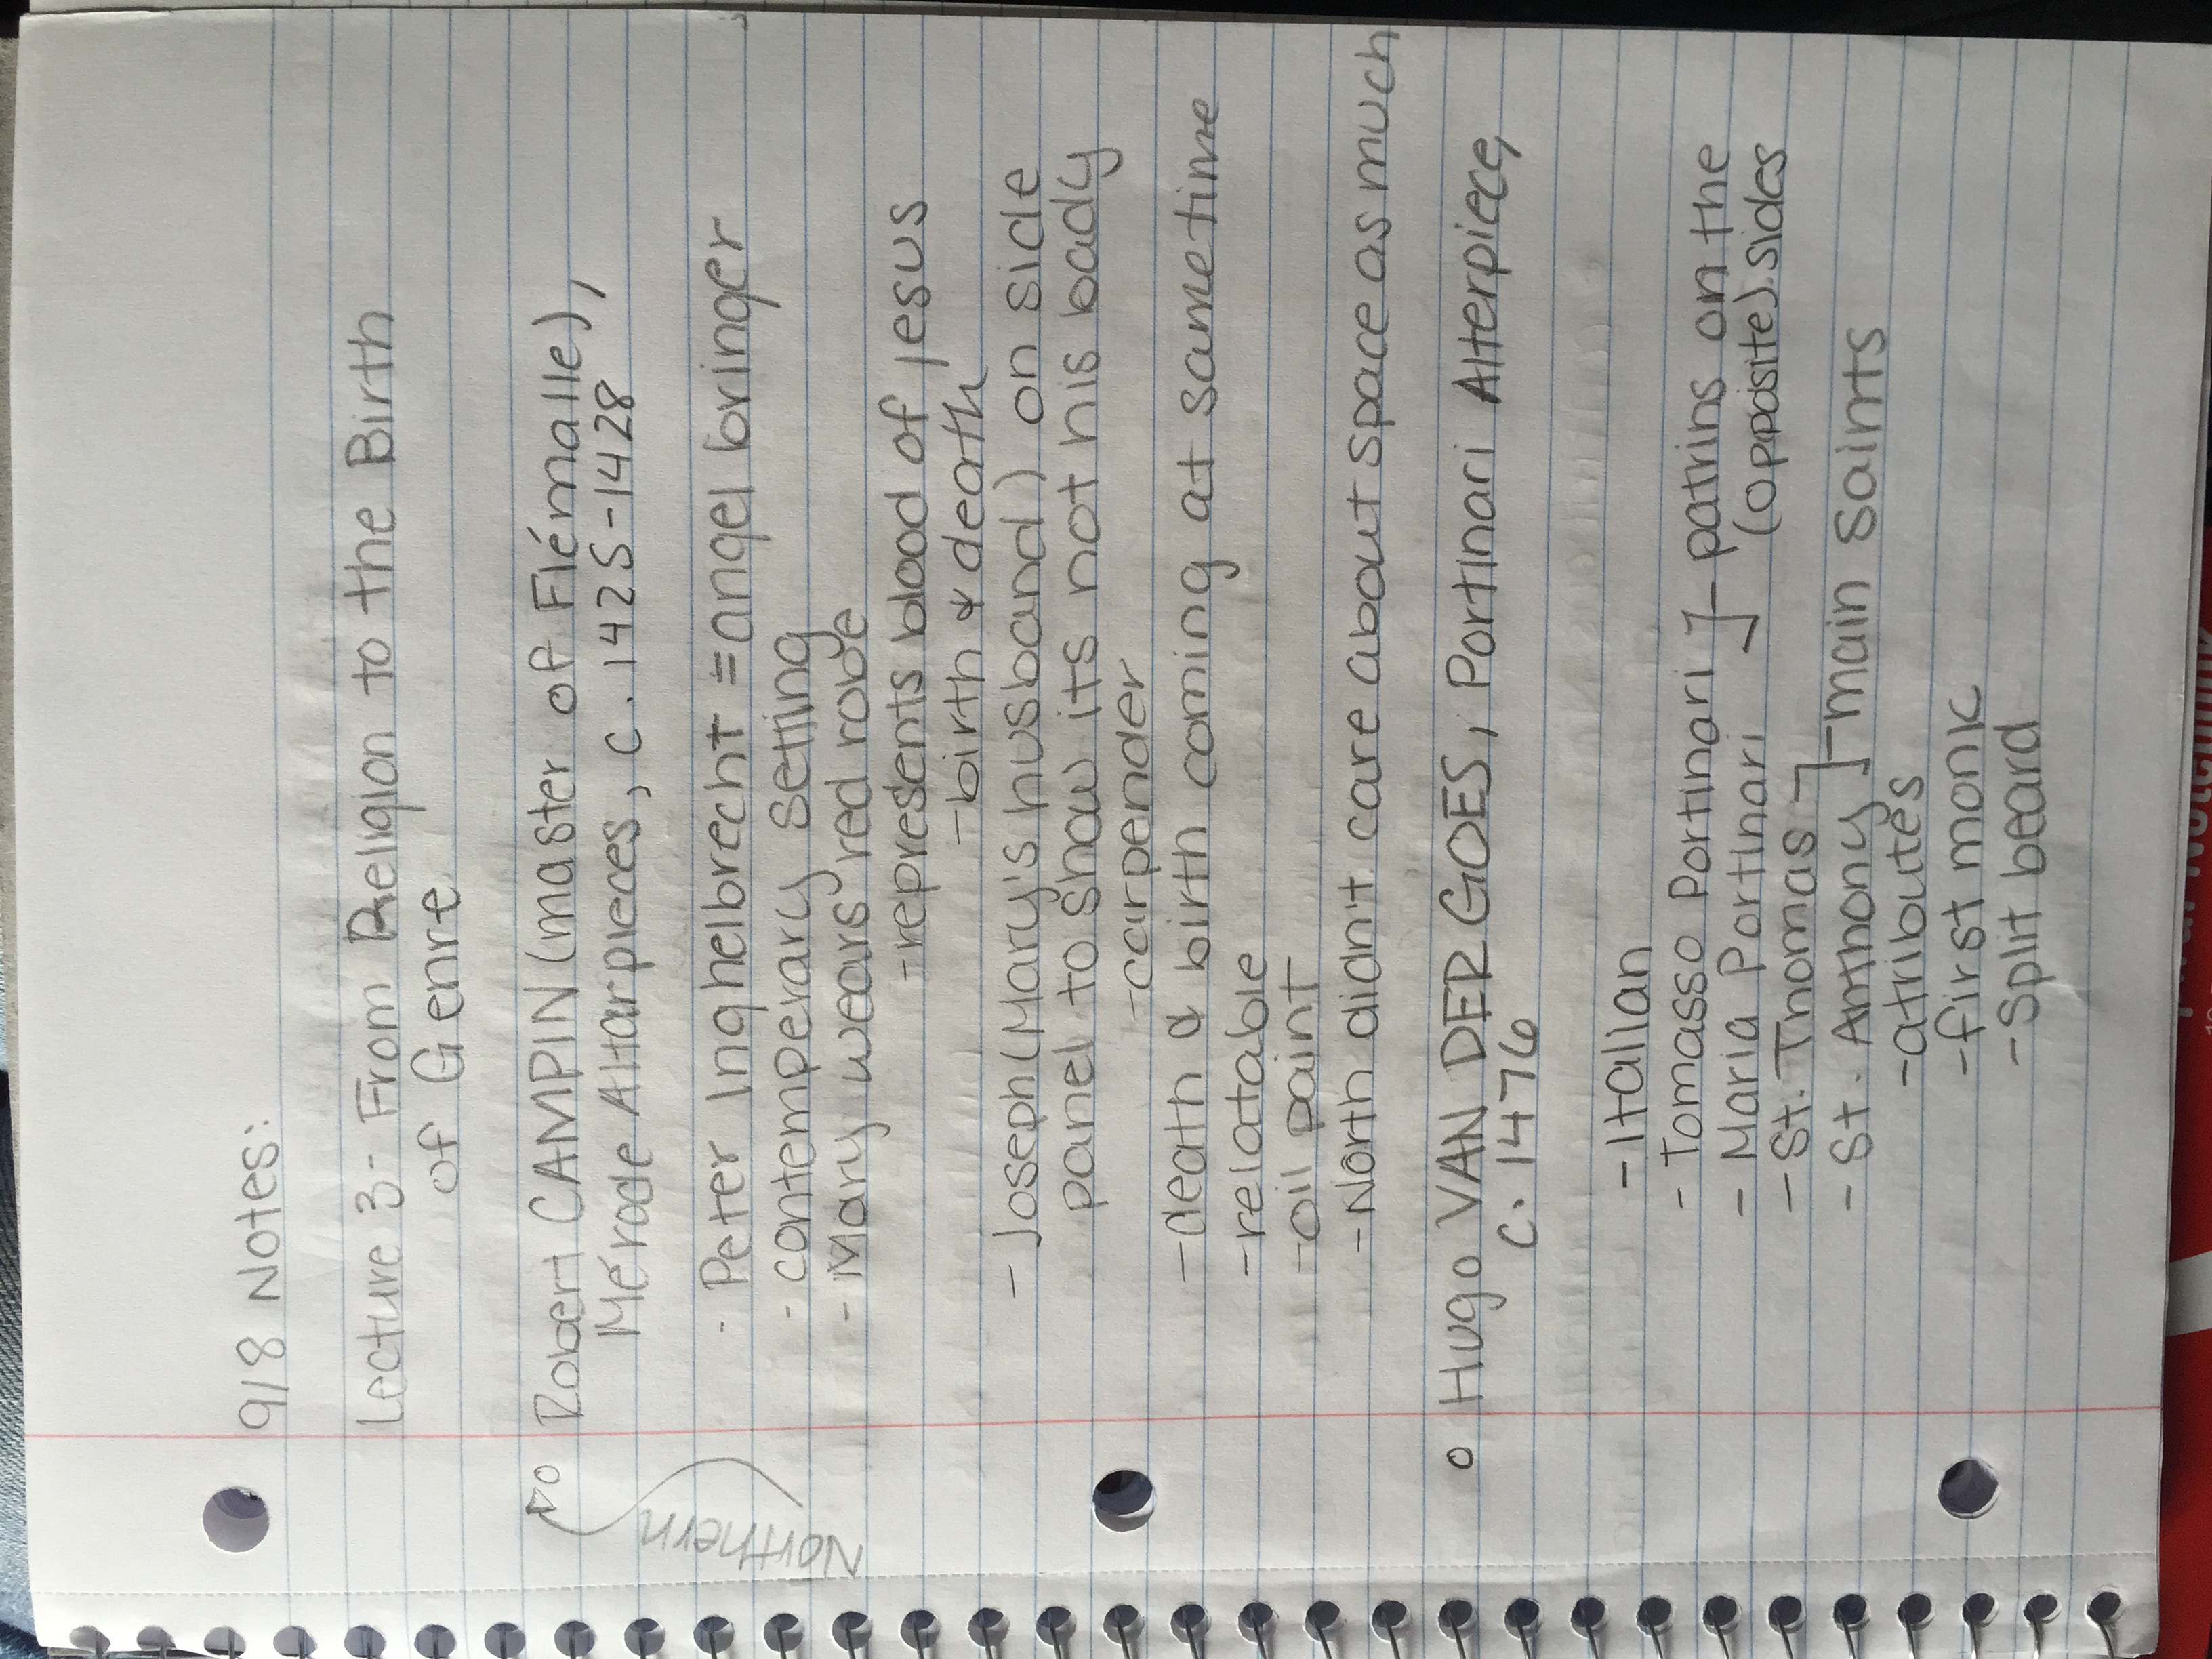 9/8 Notes:
Lecture 3 - From Religion to the Birth
of Genre
Northern
Robert CAMPIN (master of Flémalle),
Mérode Altarpieces, c. 1425-1428
- Peter Inghelbrecht = angel bringer
- contemperary setting
- Mary wears red robe
- represents blood of jesus
- birth & death
- Joseph (Mary's husband) on side
panel to show its not his baby
- carpender
- death & birth coming at same time
- relatable
- oil paint
- North didn't care about space as much
Hugo VAN DER GOES, Portinari Alterpiece,
c. 1476
- Italian
- Tomasso Portinari ] - patrins on the
- Maria Portinari (opposite) sides
- St. Thomas
- St. Anthony ] main saints
- atributes
- first monk
- split beard